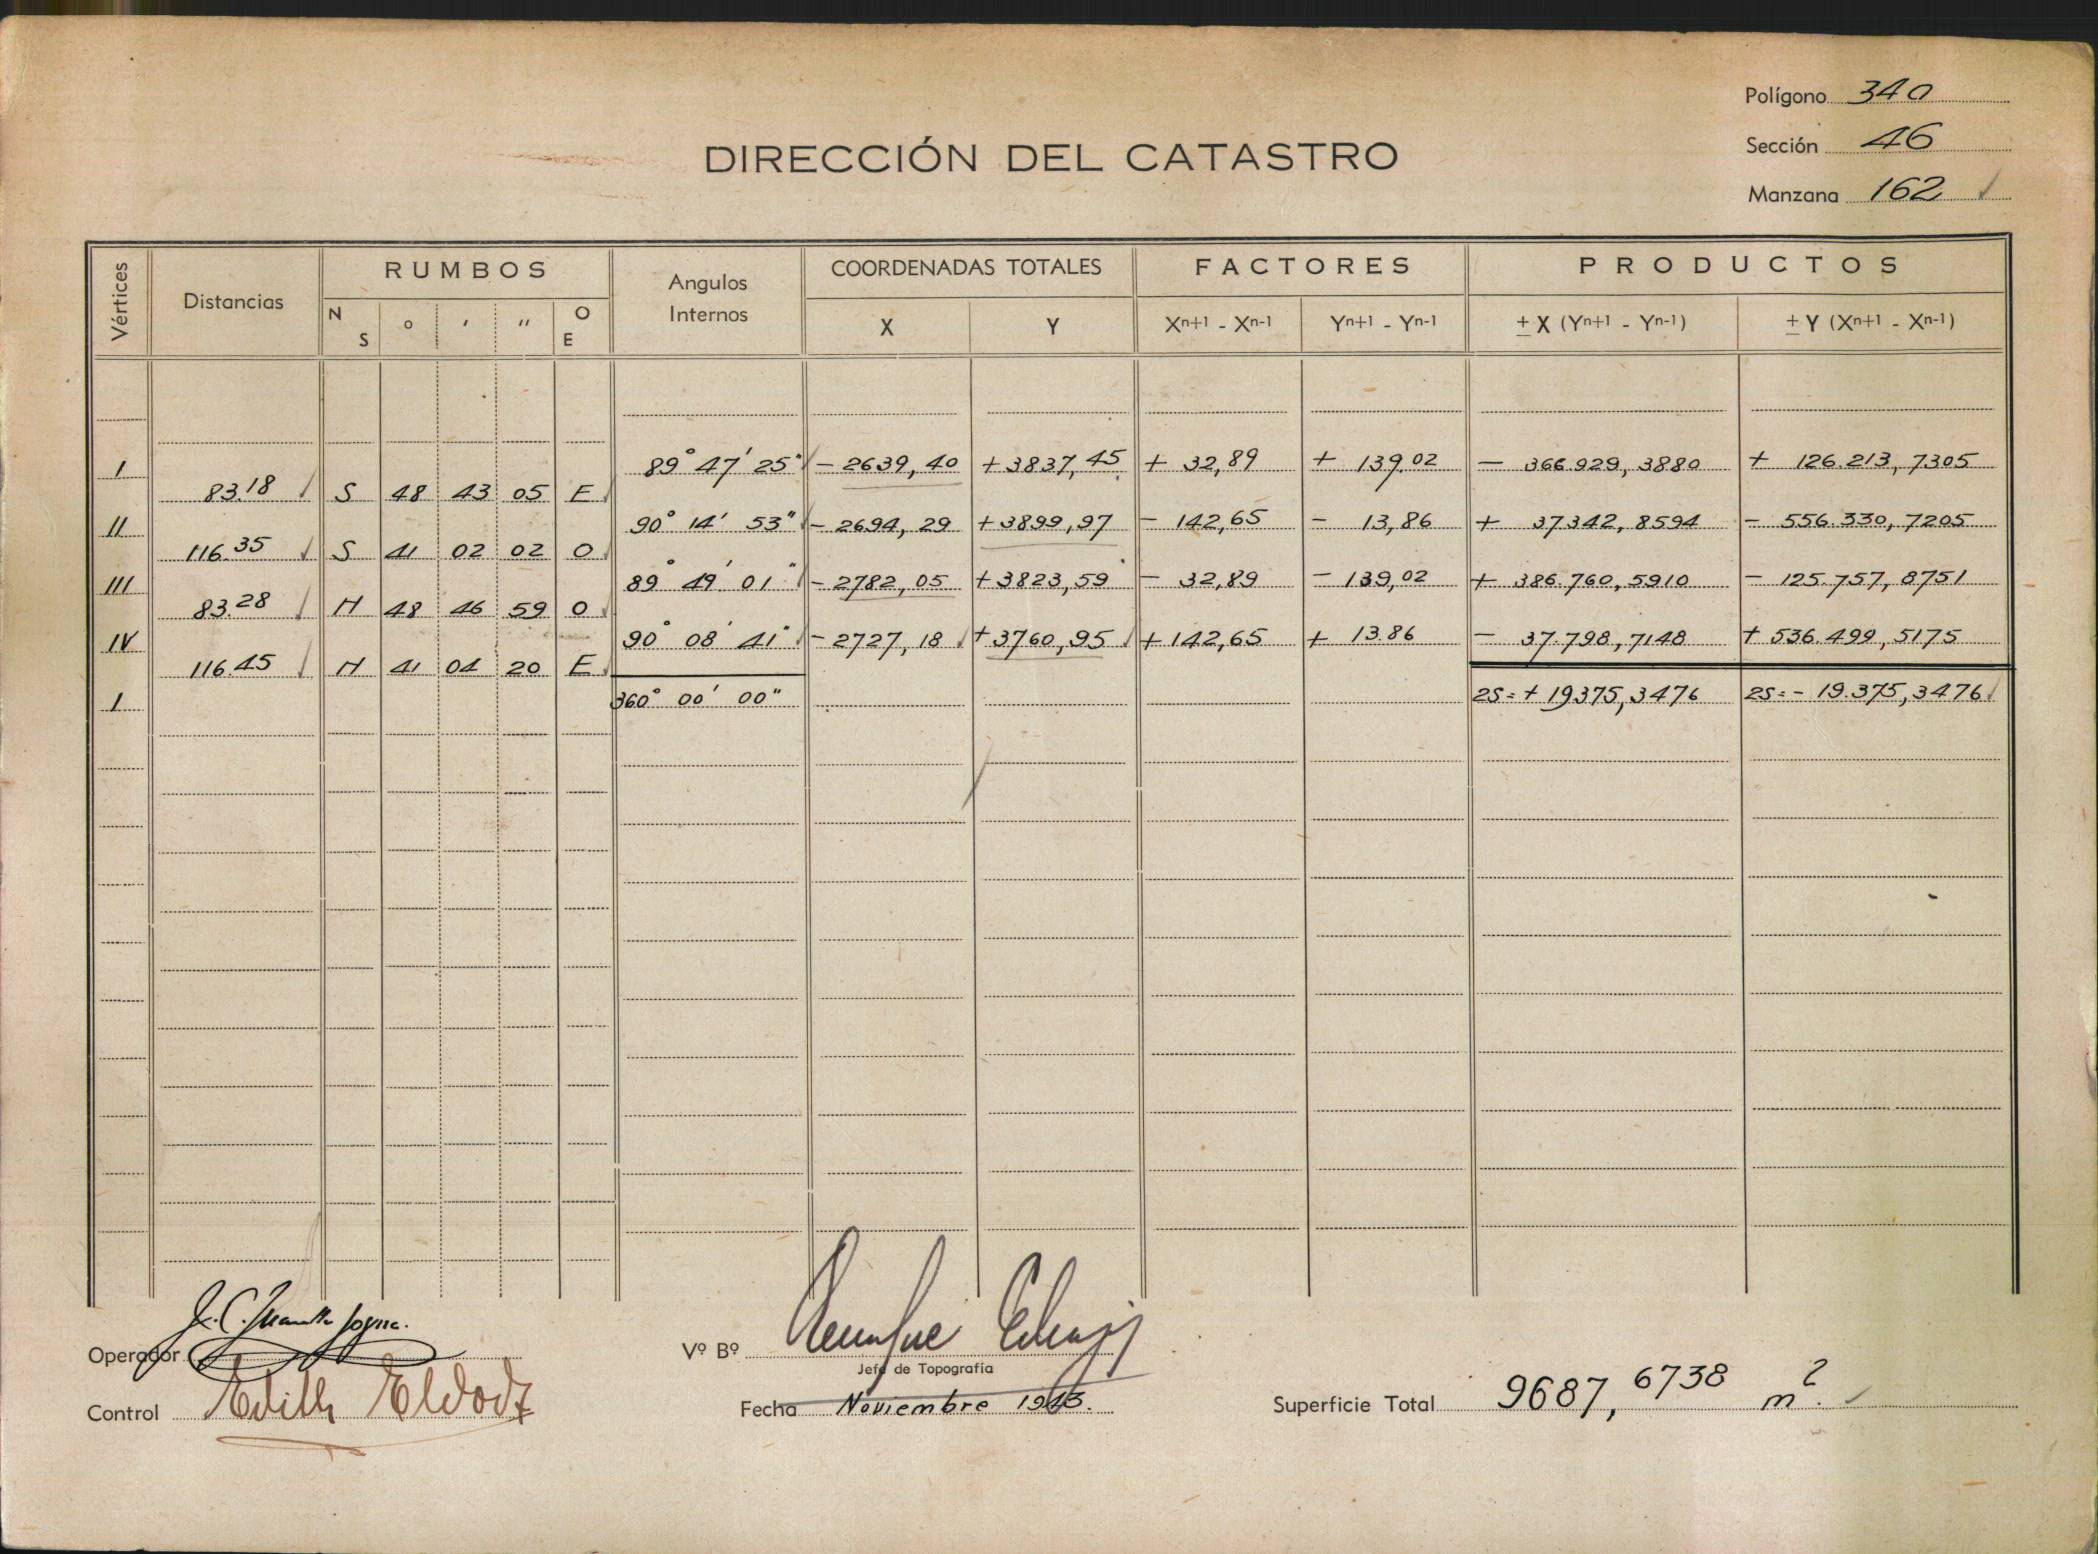 Polígono 34a
Sección 46
Manzana 162
DIRECCIÓN DEL CATASTRO
Vértices Distancias RUMBOS Angulos Internos COORDENADAS TOTALES FACTORES PRODUCTOS
N S ° ' " O E X Y Xn+1 - Xn-1 Yn+1 - Yn-1 ± X (Yn+1 - Yn-1) ± Y (Xn+1 - Xn-1)
I 89° 47' 25" - 2639,40 + 3837,45 + 32,89 + 139,02 - 366.929,3880 + 126.213,7305
83.18 S 48 43 05 E
II 90° 14' 53" - 2694,29 + 3899,97 - 142,65 - 13,86 + 37342,8594 - 556.330,7205
116.35 S 41 02 02 O
III 89° 49' 01" - 2782,05 + 3823,59 - 32,89 - 139,02 + 386.760,5910 - 125.757,8751
83.28 N 48 46 59 O
IV 90° 08' 41" - 2727,18 + 3760,95 + 142,65 + 13.86 - 37.798,7148 + 536.499,5175
116.45 N 41 04 20 E
I 360° 00' 00" 2S = + 19375,3476 2S = - 19.375,3476
Operador
Vº Bº
Jefe de Topografía
Control Edith
Fecha Noviembre 1943.
Superficie Total 9687,6738 m2.